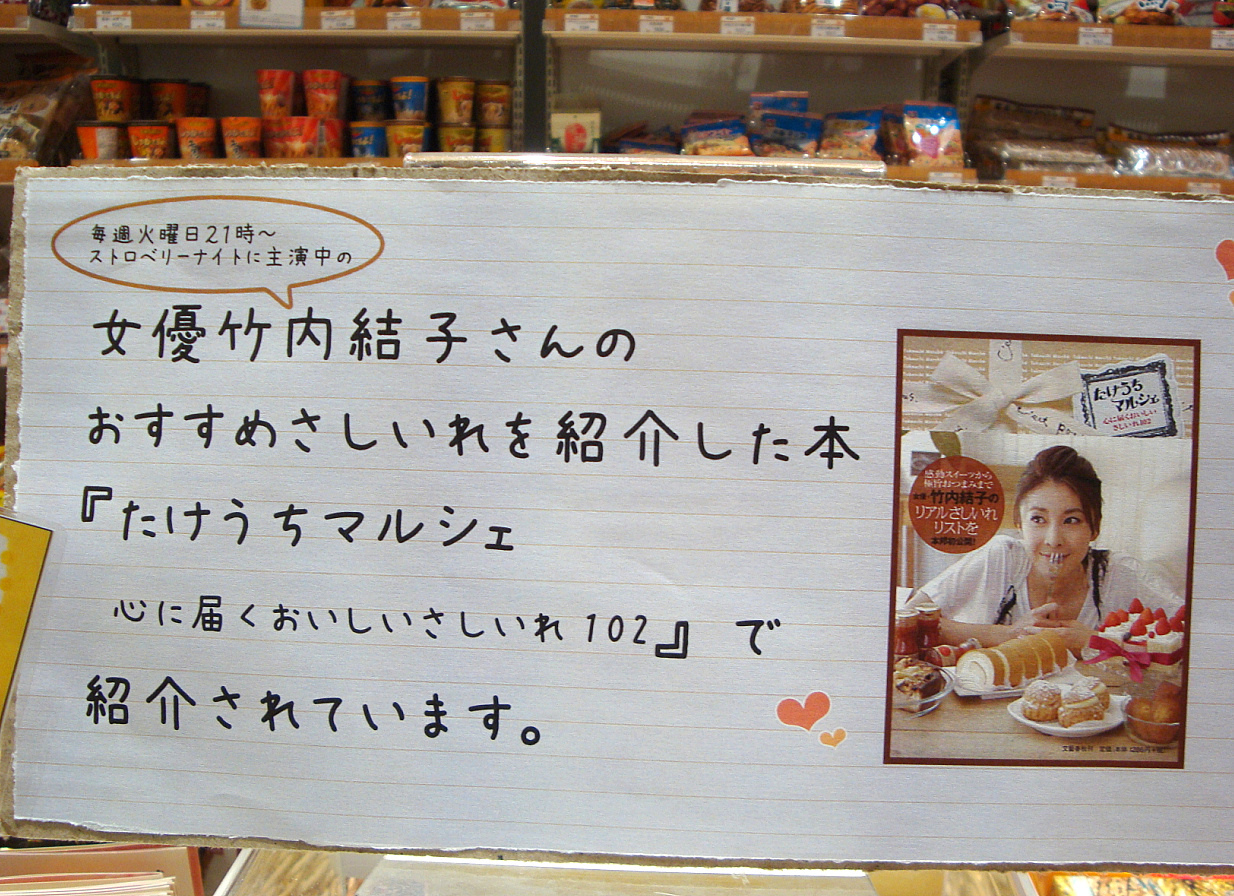 毎週火曜日21時～
ストロベリーナイトに主演中の
女優竹内結子さんの
おすすめさしいれを紹介した本
『たけうちマルシェ
心に届くおいしいさしいれ102』で
紹介されています。
たけうち
マルシェ
心に届くおいしい
さしいれ102
感動スイーツから
極旨おつまみまで
女優・竹内結子の
リアルさしいれ
リストを
本邦初公開!
文藝春秋刊 定価:本体1200円+税